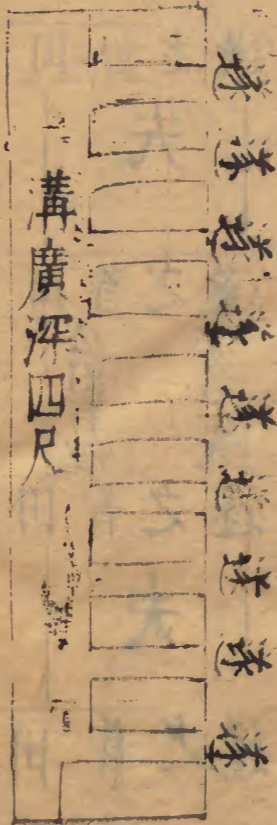 遂遂遂遂遂遂遂遂遂
溝廣深四尺